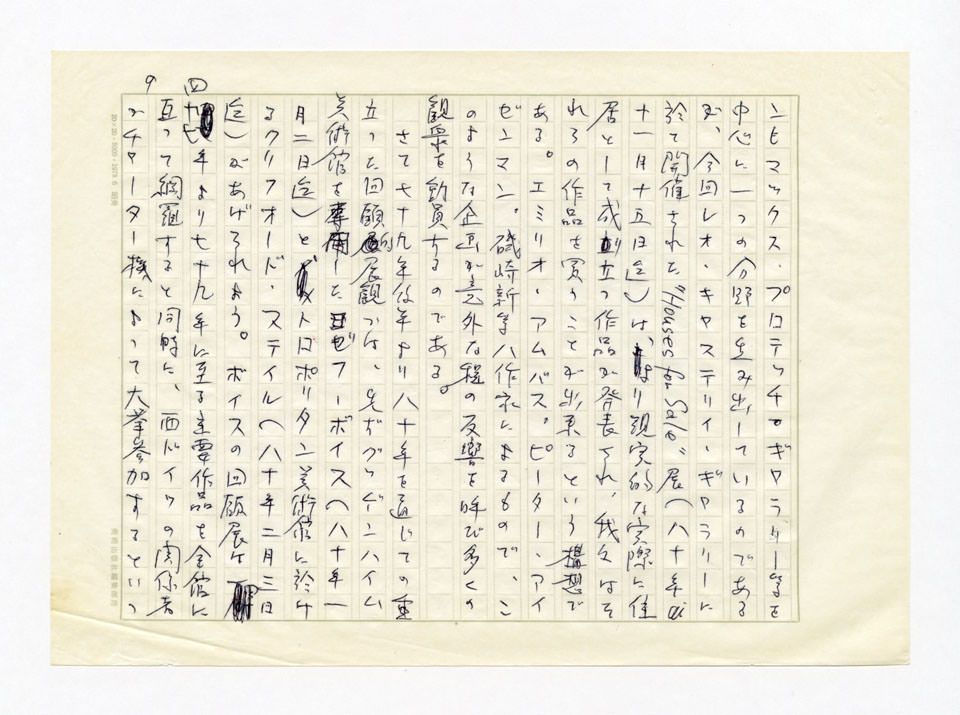 9
ンヒマックス・プロテッチ・ギャラリー等を
中心に一つの分野を生み出しているのである
が、今回レオ・キャステリイ・ギャラリーに
於て開催された "Houses for Sale" 展(八十年
十一月十五日迄)は、より現実的な実際に住
居として成り立つ作品が発表され、我々はそ
れらの作品を買うことが出来るという構想で
ある。エミリオ・アムバス。ピーター・アイ
ゼンマン。磯崎新等八作家によるもので、こ
のような企画が意外な程の反響を呼び多くの
観衆を動員するのである。
さて七十九年後年より八十年を通じての重
立った回顧的展観では、先ずグッゲンハイム
美術館を専用したヨゼフーボイス(八十年一
月二日迄)とメトロポリタン美術館に於け
るクリフォード・スティル(八十年二月三日
迄)があげられよう。ボイスの回顧展は
四十七年より七十九年に至る主要作品を全館に
亙って網羅すると同時に、西ドイツの関係者
がチャーター機によって大挙参加するといっ
20×20